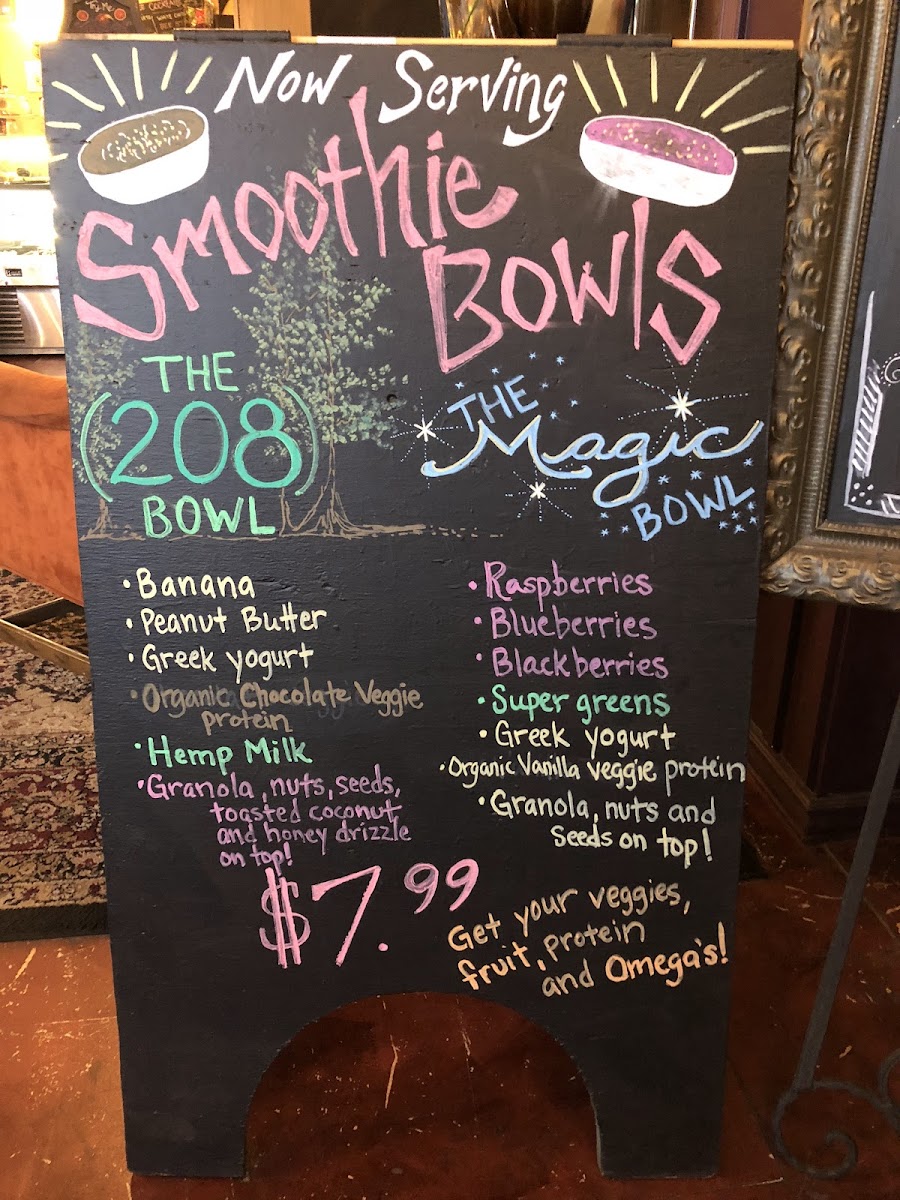 Now Serving
Smoothie
Bowls
THE
(208)
BOWL
• Banana
• Peanut Butter
• Greek yogurt
• Organic Chocolate Veggie
protein
• Hemp Milk
• Granola, nuts, seeds,
toasted coconut
and honey drizzle
on top!
THE
Magic
BOWL
• Raspberries
• Blueberries
• Blackberries
• Super greens
• Greek yogurt
• Organic Vanilla veggie protein
• Granola, nuts and
seeds on top!
$7.99
Get your veggies,
fruit, protein
and Omega's!